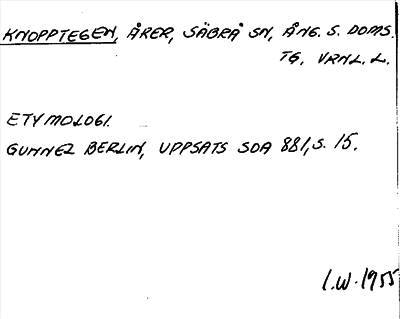 KNOPPTEGEN, ÅRER, SÄBRÅ SN, ÅNG. S. DOMS.
TG, VRNL. L.
ETYMOLOGI.
GUNNEL BERLIN, UPPSATS SOA 881, S. 15.
I.W. 1955